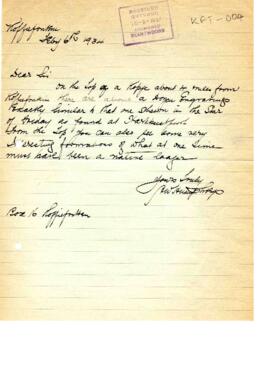 Koffiefontein
Feby 6th 1934
KFT-004
Dear Sir
on the top of a Kopje about 10 miles from
Koffiefontein there are about a dozen Engravings
Exactly similar to that one shown in the Star
of Friday as found at
From the Top you can also see some very
interesting formations of what at one time
must have been a native laager
Yours Truly
Box 16 Koffiefontein